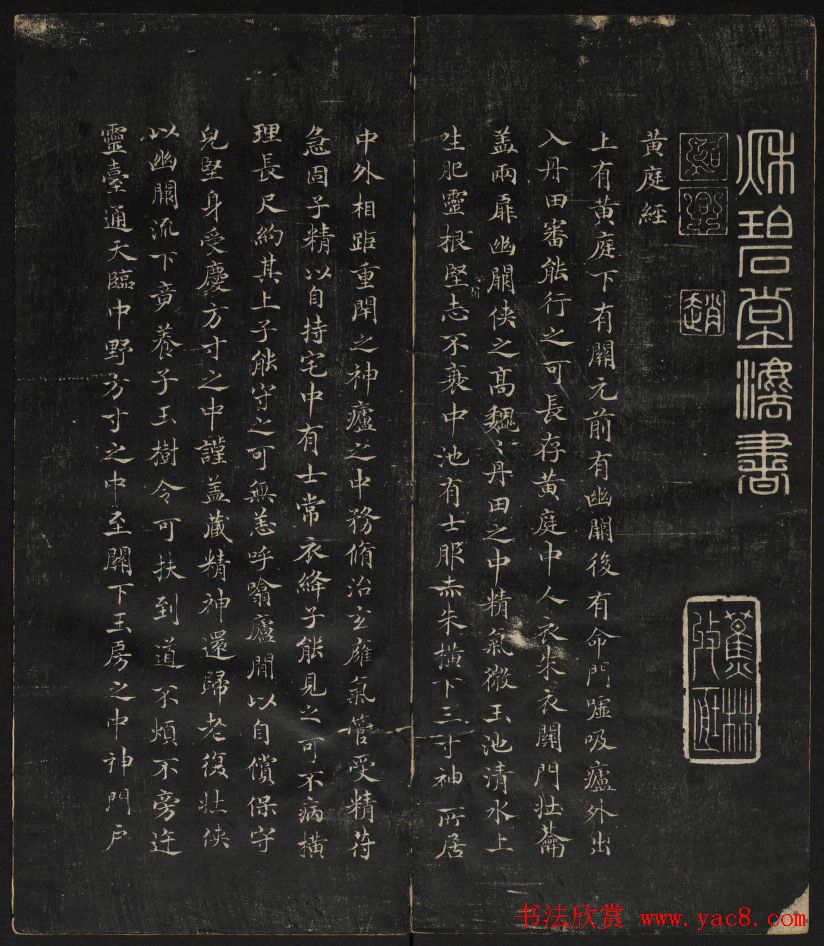 秋碧堂灋書
趙
蕉林
黃庭經
上有黃庭下有關元前有幽闕後有命門噓吸廬外出
入丹田審能行之可長存黃庭中人衣朱衣關門壯蘥
盖兩扉幽闕俠之髙魏〻丹田之中精氣微玉池清水上
生肥靈根堅志不衰中池有士服赤朱橫下三寸神所居
中外相距重閇之神廬之中務脩治玄廱氣管受精苻
急固子精以自持宅中有士常衣絳子能見之可不病橫
理長尺約其上子能守之可無恙呼噏廬間以自償保守
皃堅身受慶方寸之中謹盖藏精神還歸老復壯俠
以幽闕流下竟養子玉樹令可扶到道不煩不旁迕
靈臺通天臨中野方寸之中至關下玉房之中神門戶
书法欣赏 www.yac8.com